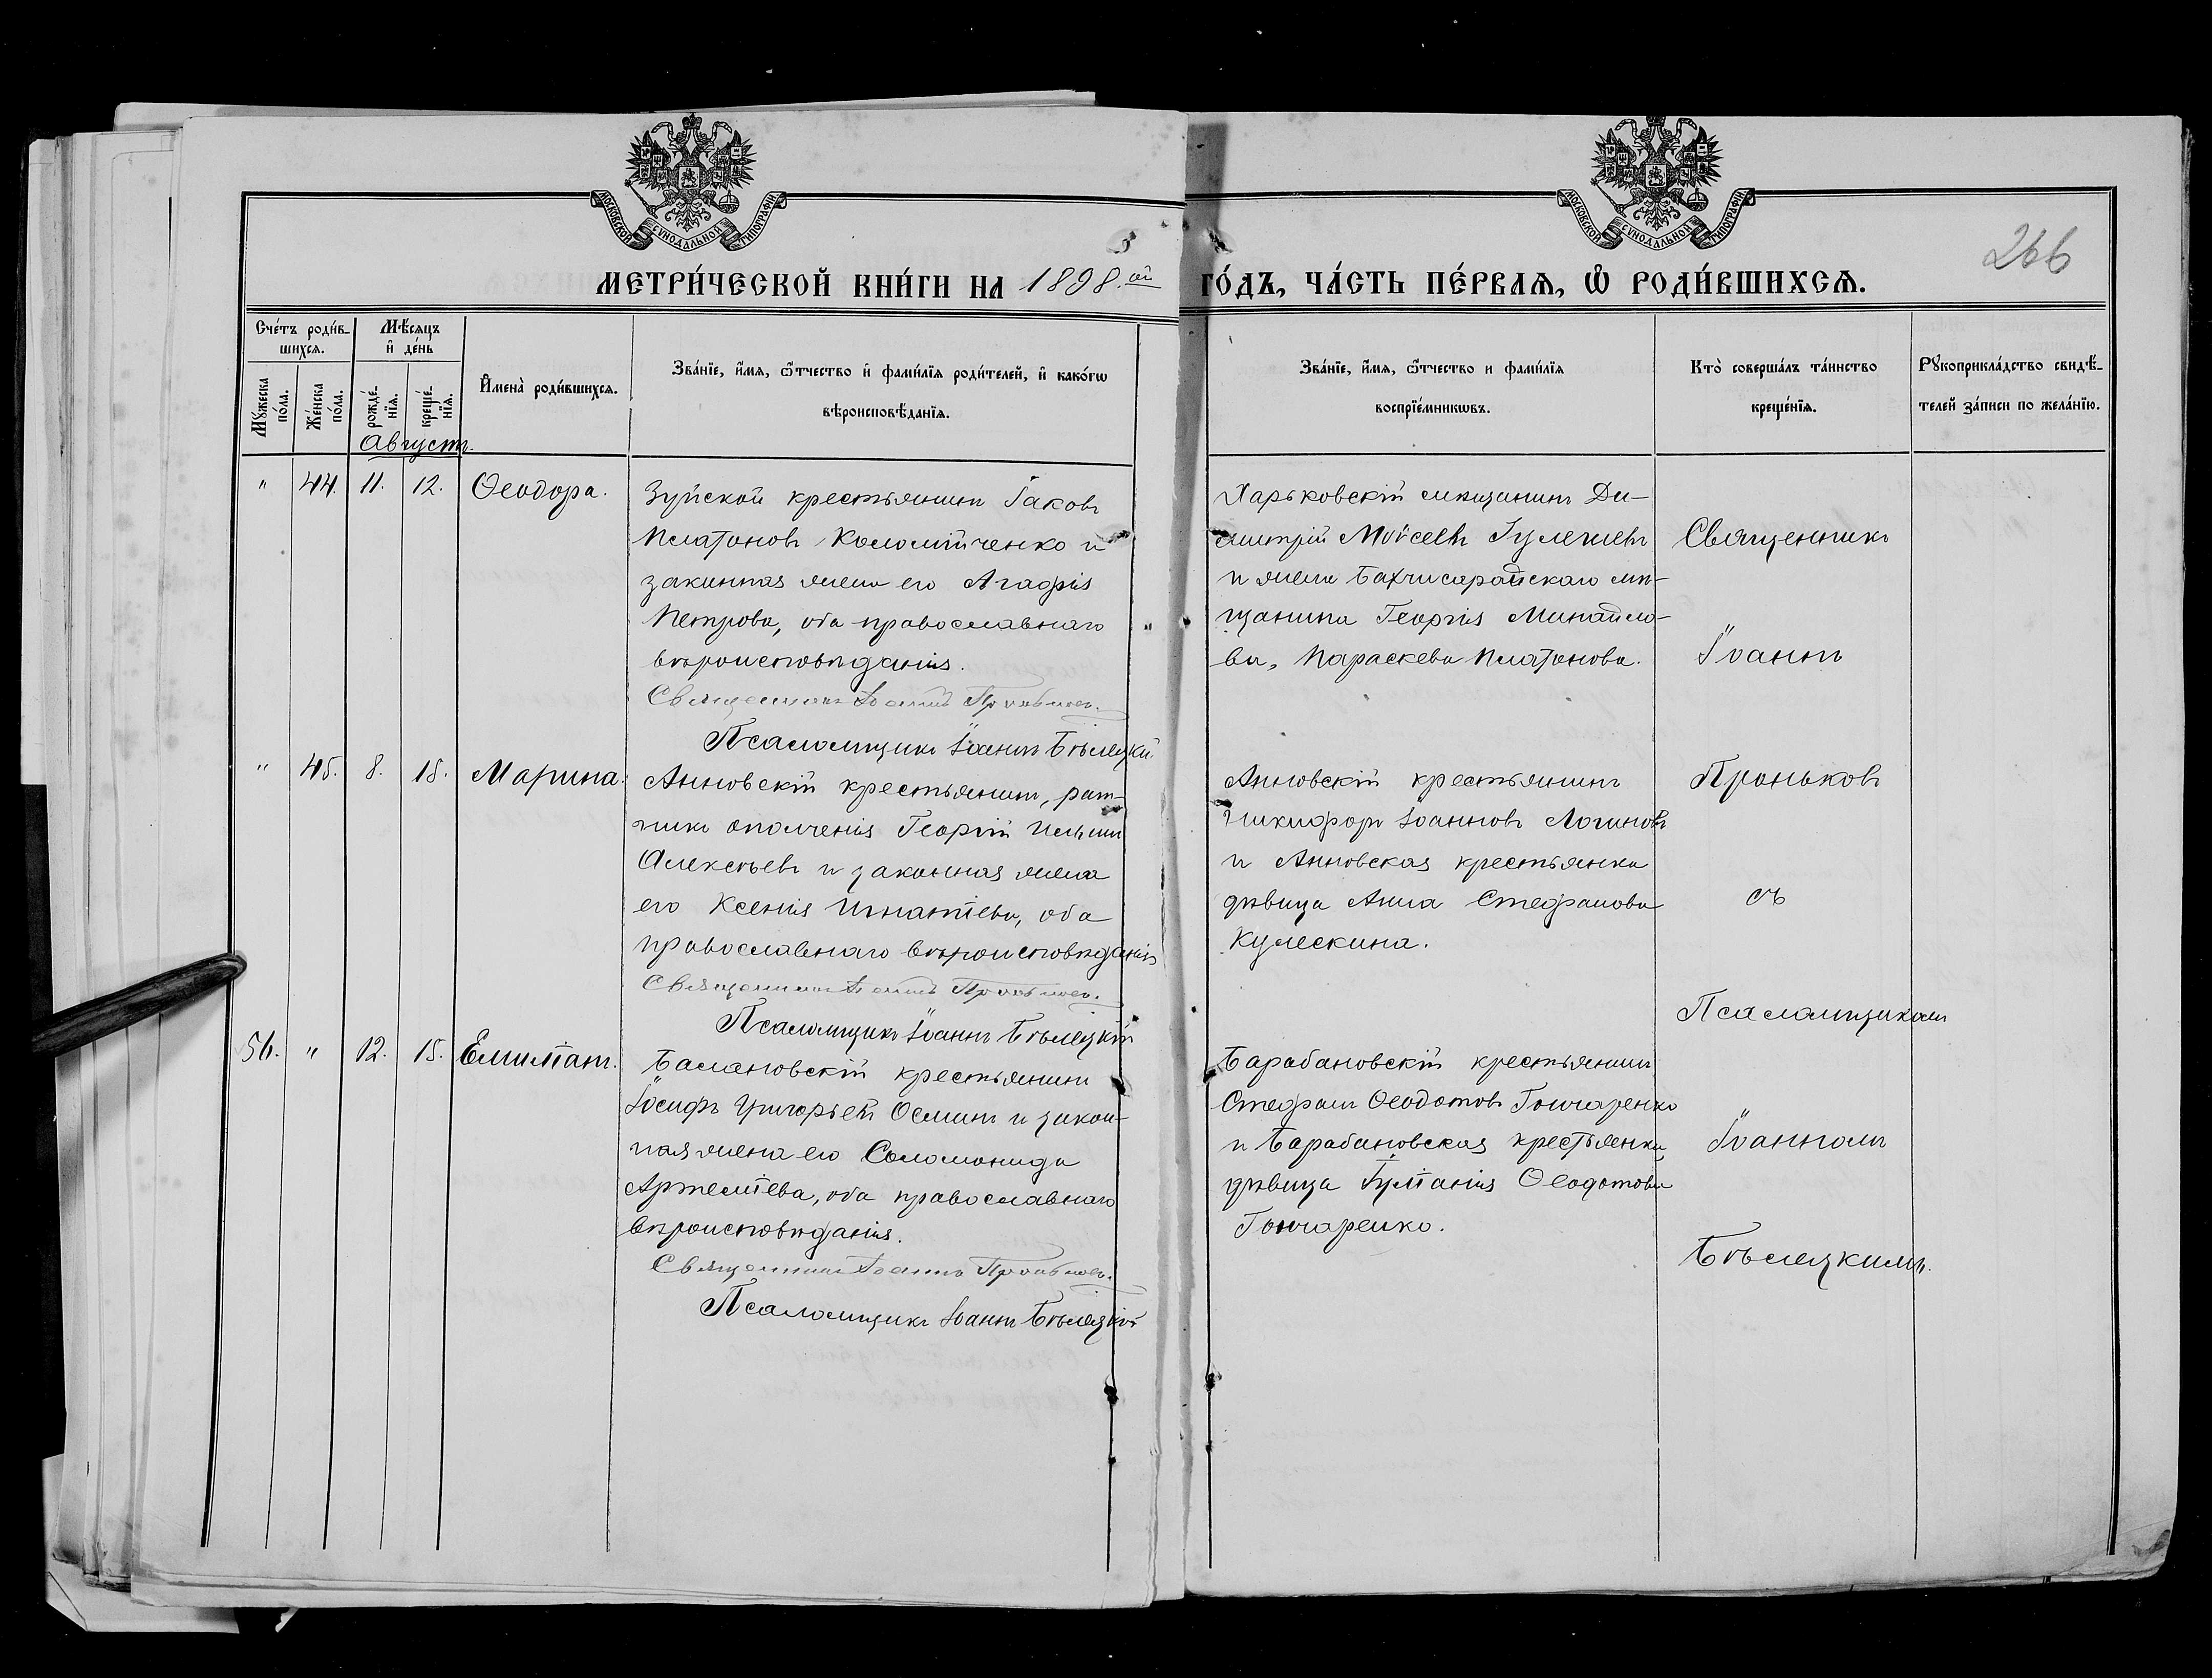 МОСКОВСКОЙ СУНОДАЛЬНОЙ ТИПОГРАФІИ
МОСКОВСКОЙ СУНОДАЛЬНОЙ ТИПОГРАФІИ
266
МЕТРИ́ЧЕСКОЙ КНИ́ГИ НА 1898.ой ГО́ДЪ, ЧА́СТЬ ПЕ́РВАѦ, Ѡ҆ РОДИ́ВШИХСѦ.
Сче́тъ роди́вшихсѧ.
Мѣ́сѧцъ и҆ де́нь
И҆мена̀ роди́вшихсѧ.
Зва́нїе, и҆́мѧ, ѻ҆́тчество и҆ фами́лїѧ роди́телей, и҆ како́гѡ
вѣроисповѣ́данїѧ.
Зва́нїе, и҆́мѧ, ѻ҆́тчество и фами́лїѧ
воспрїе́мникѡвъ.
Кто̀ соверша́лъ та́инство
креще́нїѧ.
Рꙋкоприкла́дство свидѣ́-
телей за́писи по жела́нїю.
Мꙋ́жеска по́ла.
Же́нска по́ла.
рожде́-нїѧ.
креще́-нїѧ.
Августъ.
" 44. 11. 12. Ѳеодора.
Зуйской крестьянинъ Іаковъ
Платоновъ Коломійченко и
законная жена его Агафія
Петрова, оба православнаго
вѣроисповѣданія.
Священникъ Іоаннъ Проньковъ.
Псаломщикъ Іоаннъ Бѣлецкій
Харьковскій мѣщанинъ Ди-
митрій Моѵсеевъ
и жена Бахчисарайскаго мѣ-
щанина Георгія Михайло-
ва, Параскева Платонова.
" 45. 8. 15. Марина.
Анновскій крестьянинъ, рат-
никъ ополченія Георгій Ильинъ
Алексѣевъ и законная жена
его Ксенія Игнатіева, оба
православнаго вѣроисповѣданія
Священникъ Іоаннъ Проньковъ.
Псаломщикъ Іоаннъ Бѣлецкій
Анновскій крестьянинъ
Никифоръ Іоанновъ Логиновъ
и Анновская крестьянка
дѣвица Анна Стефанова
Кулескина.
56. " 12. 15. Емиліанъ.
Балановскій крестьянинъ
Іосифъ Григорьевъ Осминъ и закон-
ная жена его Соломонида
Артеміева, оба православнаго
вѣроисповѣданія.
Священникъ Іоаннъ Проньковъ.
Псаломщикъ Іоаннъ Бѣлецкій
Барабановскій крестьянинъ
Стефанъ Ѳеодотовъ Гончаренко
и Барабановская крестьянка,
дѣвица Іуліанія Ѳеодотова
Гончаренко.
Священникъ
Іоаннъ
Проньковъ
съ
Псаломщикомъ
Іоанномъ
Бѣлецкимъ.